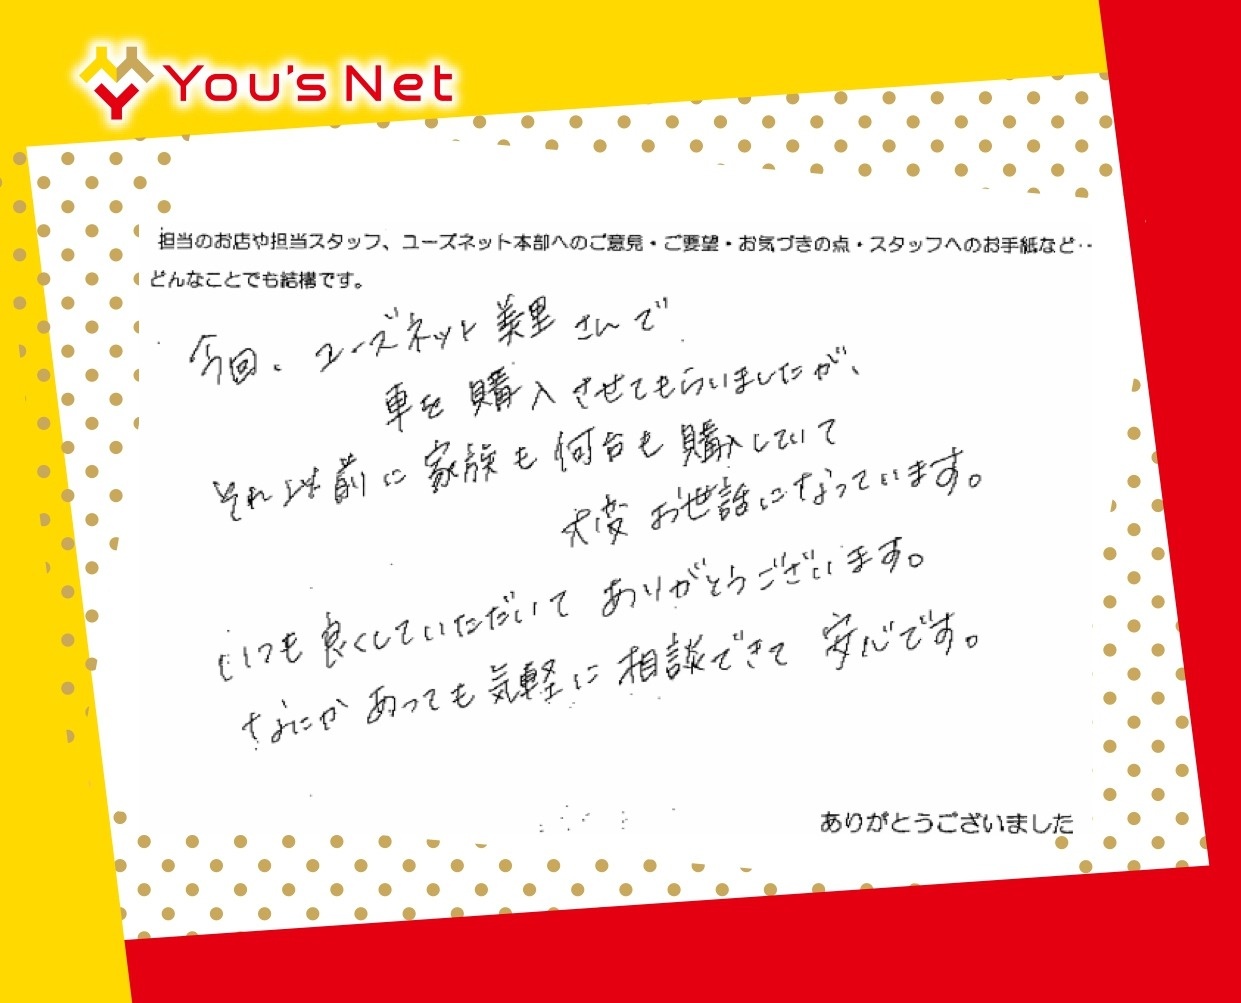 You's Net
担当のお店や担当スタッフ、ユーズネット本部へのご意見・ご要望・お気づきの点・スタッフへのお手紙など‥
どんなことでも結構です。
今回、ユーズネット美里さんで
車を購入させてもらいましたが、
それ以前に家族も何台も購入していて
大変お世話になっています。
いつも良くしていただいてありがとうございます。
なにかあっても気軽に相談できて安心です。
ありがとうございました